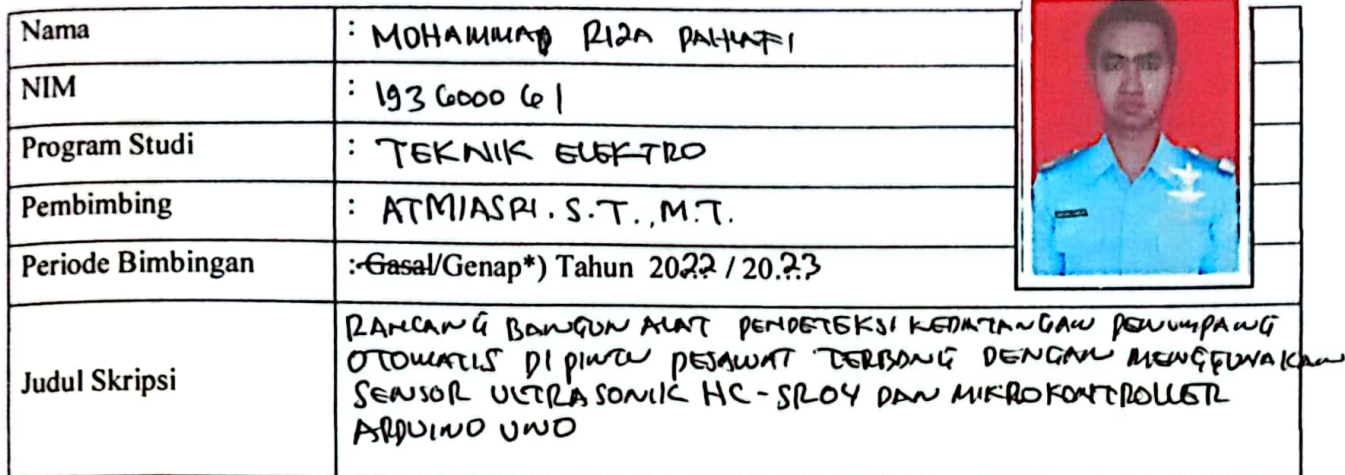 Nama : MOHAMMAD RIZA PAHLAFI
NIM : 193600061
Program Studi : TEKNIK ELEKTRO
Pembimbing : ATMIASRI. S.T., M.T.
Periode Bimbingan : Gasal/Genap*) Tahun 2022 / 20.23
Judul Skripsi : RANCANG BANGUN ALAT PENDETEKSI KEDATANGAN PENUMPANG
OTOMATIS DI PINTU PESAWAT TERBANG DENGAN MENGGUNAKAN
SENSOR ULTRASONIK HC-SR04 DAN MIKROKONTROLLER
ARDUINO UNO